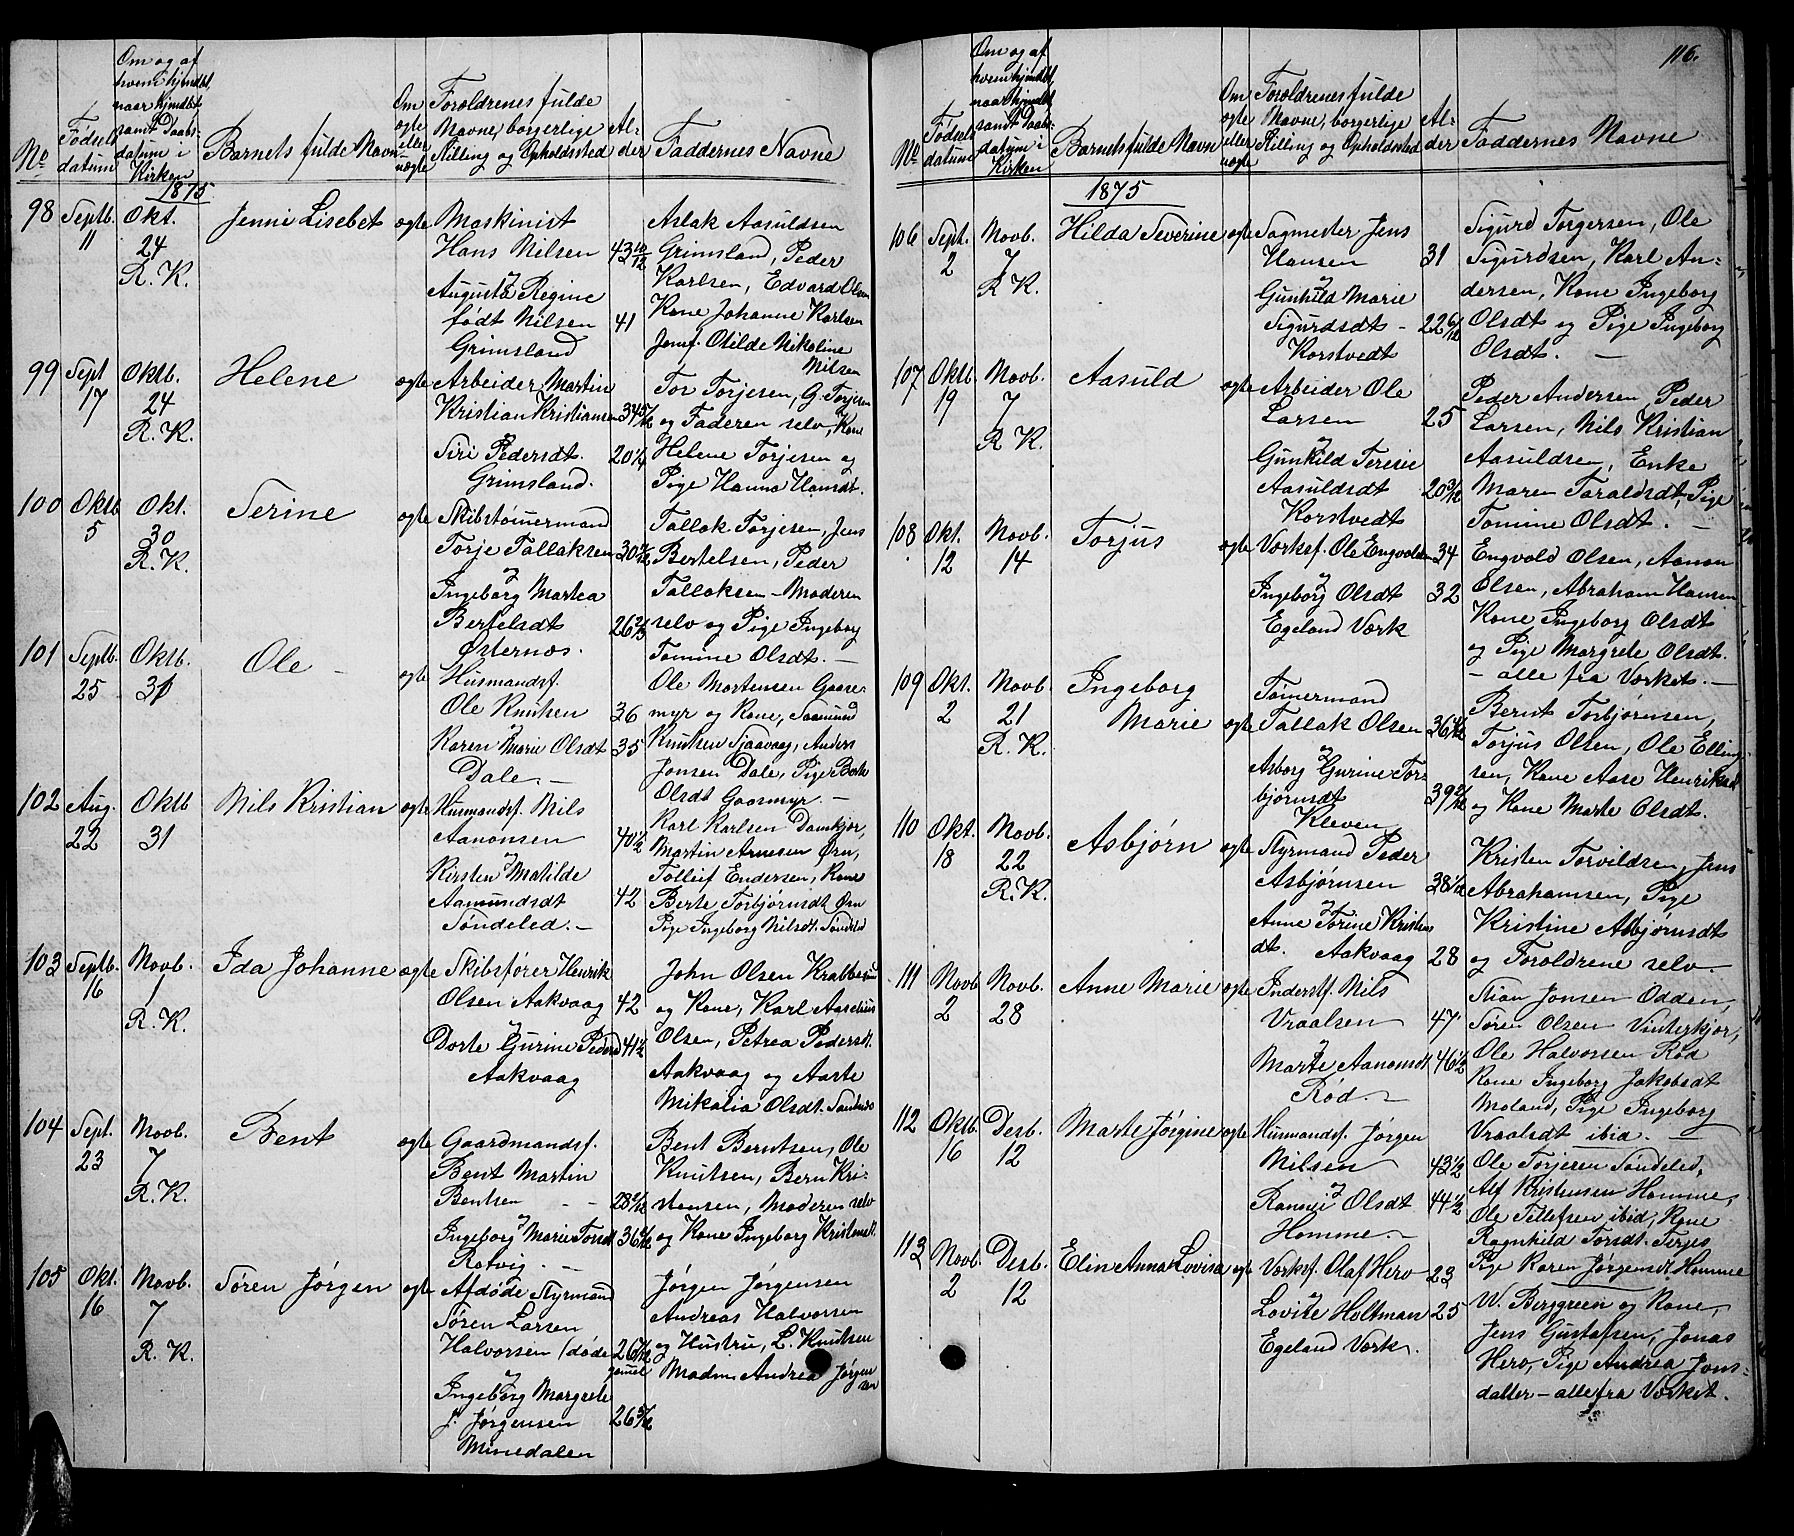 116.
No
Fødsels datum
Om og af hvem hjemdøbt, naar hjemdøbt, samt Daabsdatum i Kirken
Barnets fulde Navn
Om ægte eller uægte
Forældrenes fulde Navne, borgerlige Stilling og Opholdssted
Alder
Faddernes Navne
1875
98 Septb. 11
Okt. 24 R. K.
Jenni Lisebet
ægte
Maskinist
Hans Nilsen 43 10/12
Augusta Regine
født Nilsen 41
Grimsland
Aslak Aasuldsen
Grimsland, Peder
Karlsen, Edvard Olsen
Kone Johanne Karlsen
Jomf. Otilde Nikoline
Nilsen
99 Sept 17
Oktb. 24 R. K.
Helene
ægte
Arbeider Martin
Kristian Kristiansen 34 5/12
Siri Pedersdt. 20 1/4
Grimsland.
Tor Torjesen, G. Torjesen
og Faderen selv, Kone
Helene Torjesen og
Pige Hanna Hansdt.
100 Oktb 5
Okt. 30 R. K.
Serine
ægte
Skibstømermand
Torje Tallaksen 30
Ingeborg Martea
Bertelsdt 26 2/3
Østernæs.
Tallak Torjesen, Jens
Bertelsen, Peder
Tallaksen - Moderen
selv og Pige Ingeborg
Tomine Olsdt. —
101 Septb. 25
Oktb. 31
Ole —
ægte
Husmandsf.
Ole Knutsen 36
Karen Marie Olsdt 35
Dale. —
Ole Mortensen Gaase-
myr og Kone, Aamund
Knutsen Sjaavaag, Anders
Jonsen Dale, Pige Berte
Olsdt Gaasmyr. —
102 Aug. 22
Oktb 31
Nils Kristian
ægte
Husmandsf. Nils
Aanonsen 40 1/2
Kirsten Matilde
Aamundsdt 42
Søndeled. —
Karl Karlsen Damkjær,
Martin Arnesen Ørn,
Tollеif Endersen, Kone
Berte Torbjørnsdt Ørn
Pige Ingeborg Nilsdt. Søndeled
103 Septb. 16
Novb. 1 R. K.
Ida Johanne
ægte
Skibsfører Henrik
Olsen Aakvaag 42
Dorte Gurine Pedersd 41 1/2
Aakvaag
John Olsen Krabbesund
og Kone, Karl Aaselius
Olsen, Petrea Pedersdt.
Aakvaag og Aarte
Mikalia Olsdt. Sandnæs
104 Sept. 23
Novb. 7 R. K.
Bent
ægte
Gaardmandsf.
Bent Martin
Bentsen - - 28
Ingeborg Marie Torsdt 36
Rotvig. —
Bent Berntsen, Ole
Knutsen, Bern Kri-
stensen, Moderen selv
og Kone Ingeborg Kristensdt.
105 Okt. 16
Novb. 7 R. K.
Søren Jørgen
ægte
Afdøde Styrmand
Søren Larsen
Halvorsen (døde 26
gammel
Ingeborg Margrete
f. Jørgensen 26 5/12
Minedalen
Jørgen Jørgensen
Andreas Halvorsen
og Hustru, L. Knutsen
Madm. Andrea Jørgen-
sen
No
Fødsels datum
Om og af hvem hjemdøbt, naar hjemdøbt, samt Daabsdatum i Kirken
Barnets fulde Navn
Om ægte eller uægte
Forældrenes fulde Navne, borgerlige Stilling og Opholdssted
Alder
Faddernes Navne
1875
106 Sept. 2
Novb. 7 R. K.
Hilda Severine
ægte
Sagmester Jens
Hansen 31
Gunhild Marie
Sigurdsdt - 22 6/12
Korstvedt
Sigurd Torgersen, Ole
Sigurdsen, Karl An-
dersen, Kone Ingeborg
Olsdt og Pige Ingeborg
Olsdt. —
107 Oktb. 19
Novb. 7 R K.
Aasuld
ægte
Arbeider Ole
Larsen 25
Gunhild Teresie
Aasuldsdt 20 3/12
Korstvedt
Peder Andersen, Peder
Larsen, Nils Kristian
Aasuldsen, Enke
Maren Taraldsdt, Pige
Tomine Olsdt. —
108 Okt. 12
Novb. 14
Torjus
ægte
Værksf. Ole Engvoldsen 34
Ingeborg Olsdt 32
Egeland Værk
Engvold Olsen, Aanon
Olsen, Abraham Hansen
Kone Ingeborg Olsdt
og Pige Margrete Olsdt.
- alle fra Værket. —
109 Okt. 2
Novb. 21 R. K.
Ingeborg
Marie
ægte
Tømermand
Tallak Olsen 36
Asborg Gurine Tor-
bjørnsdt 39
Kleven
Bernt Torbjørnsen,
Torjus Olsen, Ole Elling-
sen, Kone Aase Henriksdt
og Kone Marte Olsdt.
110 Okt. 18
Novb. 22 R. K.
Asbjørn
ægte
Styrmand Peder
Asbjørnsen 38 1/2
Anne Torine Kristens
dt. Aakvaag 28
Kristen Torvildsen, Jens
Abrahamsen, Pige
Kristine Asbjørnsdt
og Forældrene selv. —
111 Novb 2
Novb. 28
Anne Marie
ægte
Inderstf. Nils
Vraalsen 47
Marte Aanonsdt 46 1/2
Rød. —
Stian Jonsen Odden,
Søren Olsen Vinterkjær,
Ole Halvorsen Rød
Kone Ingeborg Jakobsdt
Moland, Pige Ingeborg
Vraalsdt ibid. —
112 Oktb. 16
Desb. 12
Marte Jørgine
ægte
Husmandsf. Jørgen
Nilsen 43 1/2
Rannei Olsdt 44 1/2
Homme. —
Ole Torjesen Søndeled,
Alf Kristensen Homme,
Ole Tellefsen ibid, Kone
Ragnhild Torsdt. Terjes
Pige Karen Jørgensdt. Homme
113 Novb. 2
Desb. 12
Elin Anna Lovisa
ægte
Værksf. Olaf Hero 23
Lovise Holtman 25
Egeland Værk.
W. Berggreen og Kone,
Jens Gustafsen, Jonas
Hero, Pige Andrea Jons-
datter - alle fra Værket.